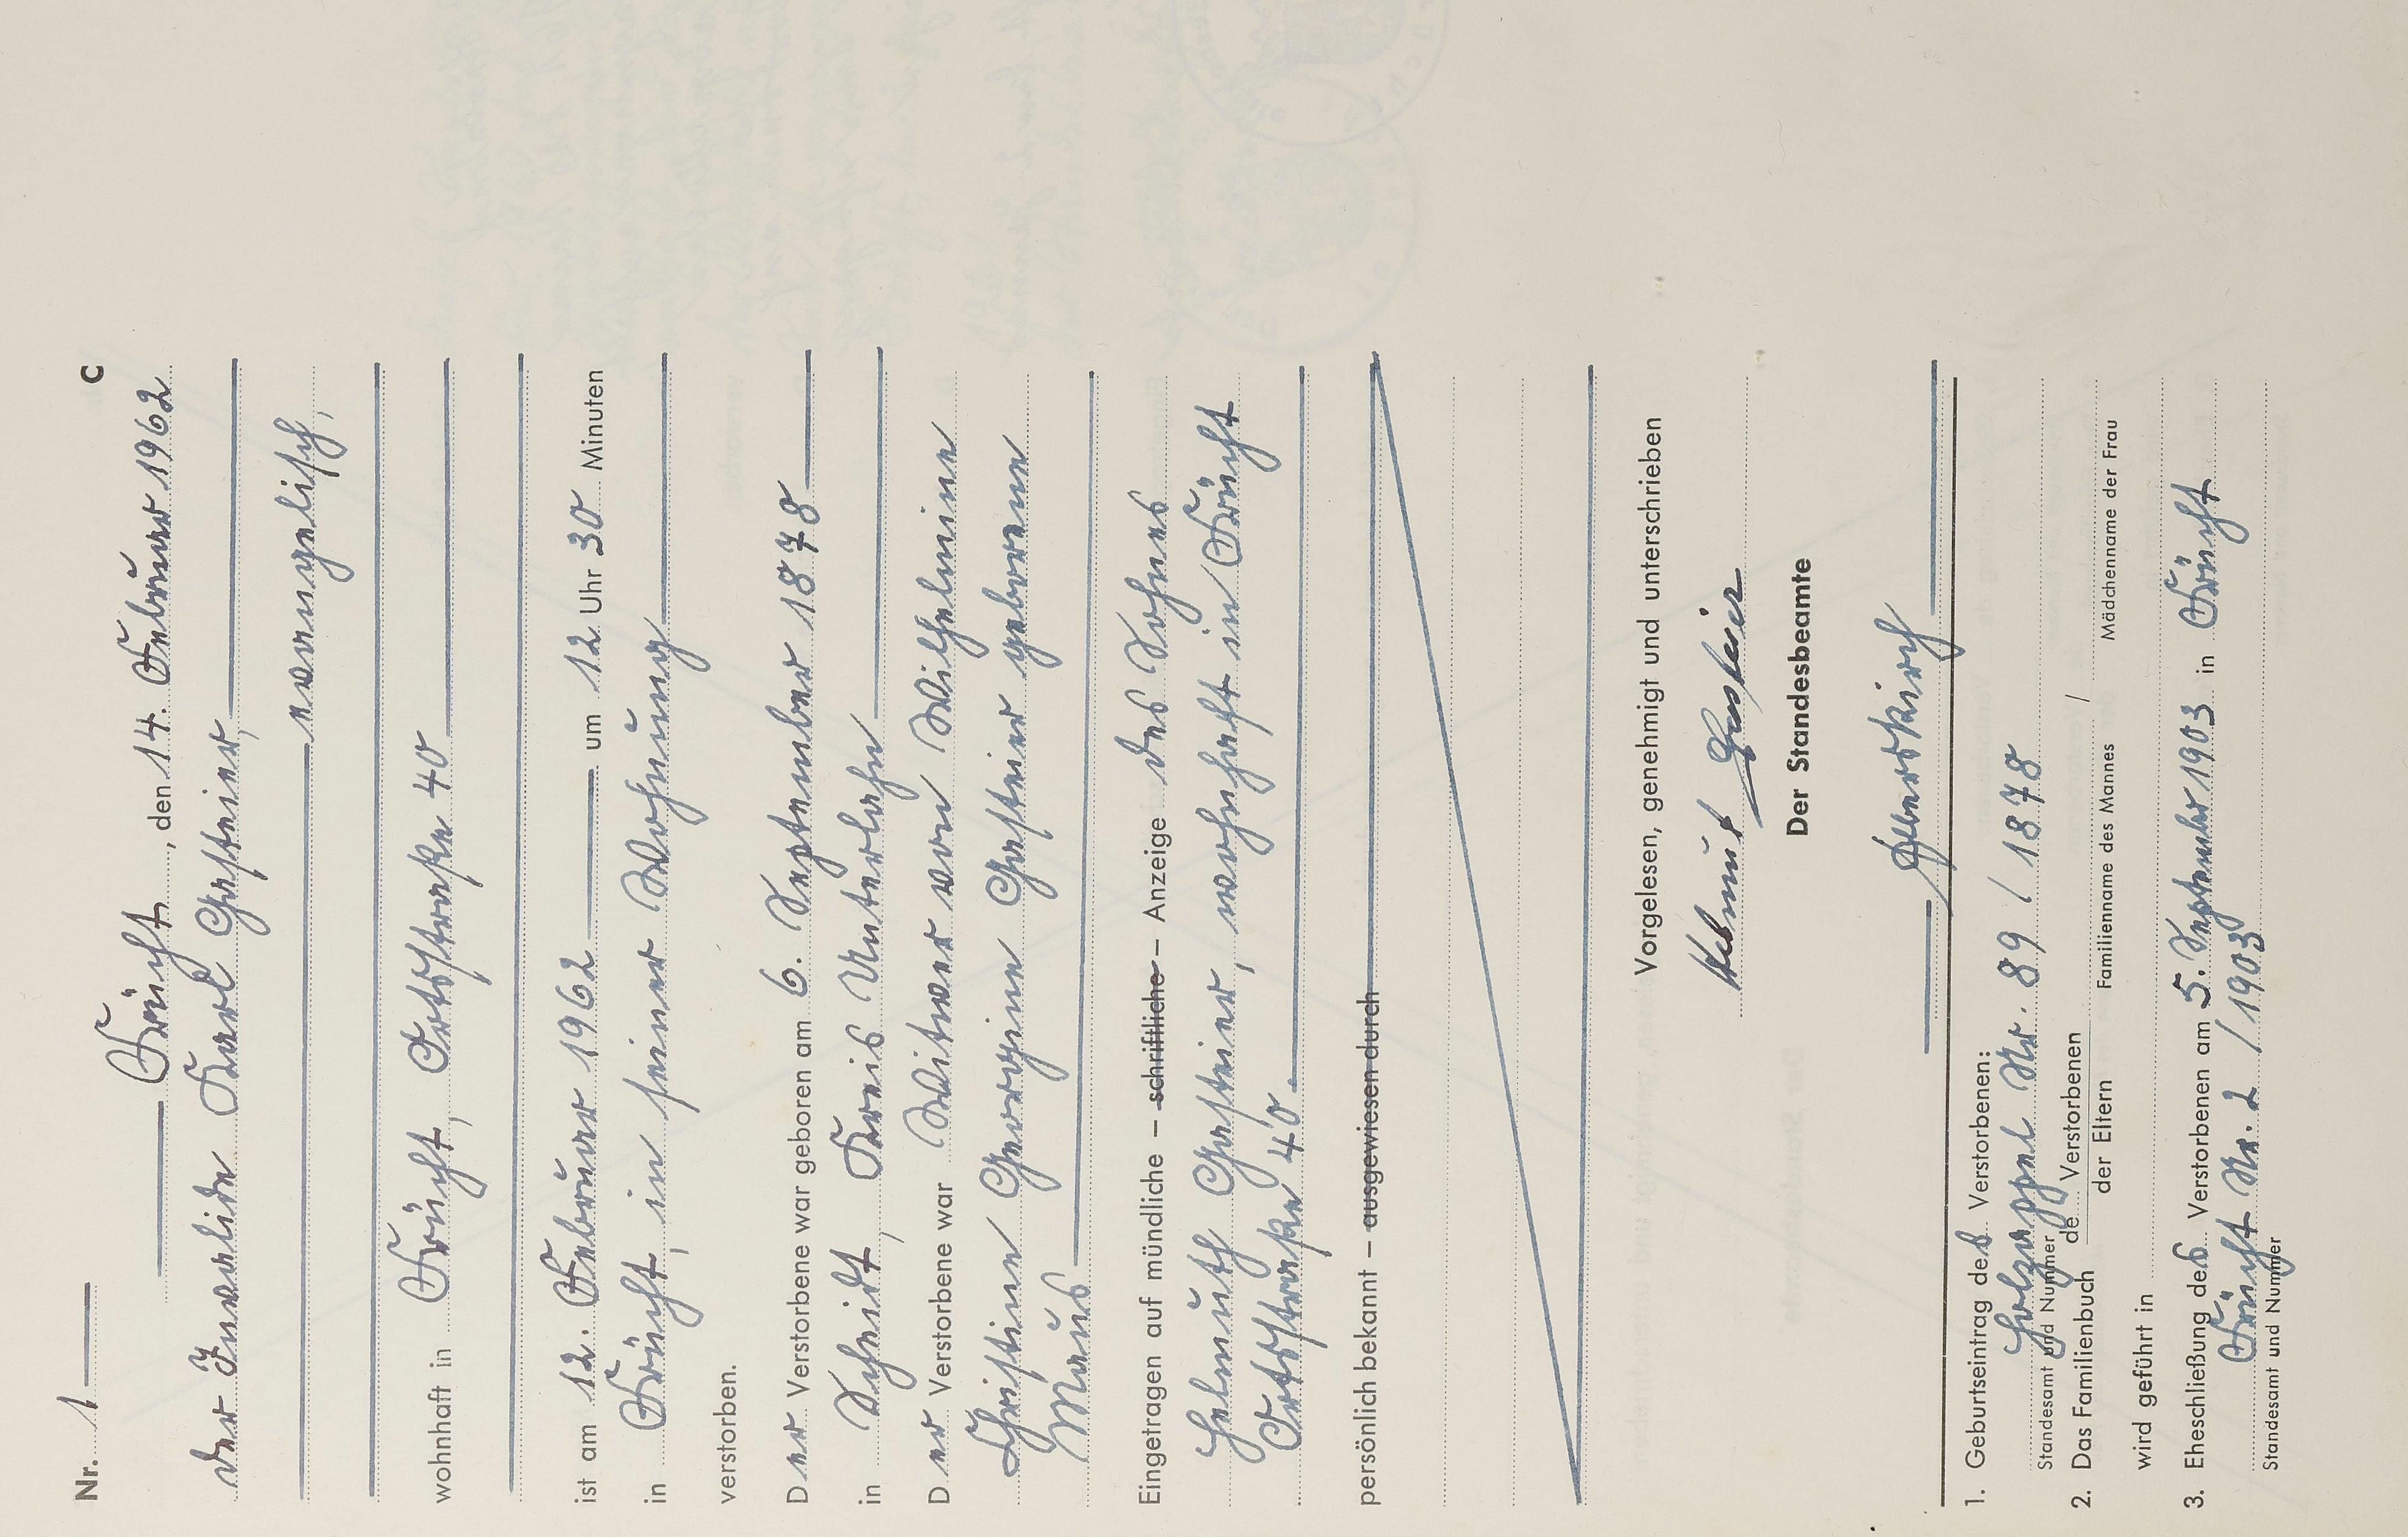 Nr. 1
C
Frücht, den 14. Februar 1962
der Invalide Karl Gasteier,
evangelisch,
wohnhaft in Frücht, Ortsstraße 40
ist am 12. Februar 1962 um 12 Uhr 30 Minuten
in Frücht, in seiner Wohnung
verstorben.
Der Verstorbene war geboren am 6. September 1878
in Scheidt, Kreis Unterlahn
Der Verstorbene war Witwer von Wilhelmine
Christine Georgine Gasteier geborene
Maus
Eingetragen auf mündliche – schriftliche – Anzeige des Sohnes
Helmuth Gasteier, wohnhaft in Frücht
Ortsstraße 40.
persönlich bekannt – ausgewiesen durch
Vorgelesen, genehmigt und unterschrieben
Helmut Gasteier
Der Standesbeamte
1. Geburtseintrag des Verstorbenen:
Holzappel Nr. 89 / 1878
Standesamt und Nummer
2. Das Familienbuch de Verstorbenen
der Eltern
/
Familienname des Mannes Mädchenname der Frau
wird geführt in
3. Eheschließung des Verstorbenen am 5. September 1903 in Frücht
Frücht Nr. 2 / 1903
Standesamt und Nummer